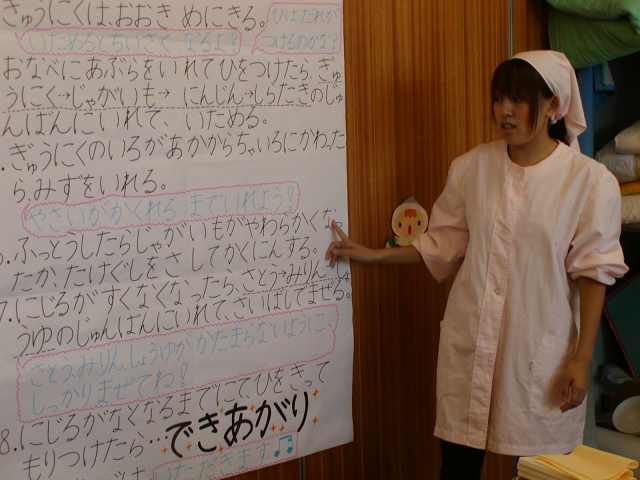 ぎゅうにくは、おおきめにきる。
いためるとちいさくなるよ!
ひはだれが
つけるのかな?
おなべにあぶらをいれてひをつけたら、ぎゅ
うにく→じゃがいも→にんじん→しらたきのじゅ
んばんにいれて、いためる。
.ぎゅうにくのいろがあかからちゃいろにかわった
ら、みずをいれる。
やさいがかくれるまでいれよう!
.ふっとうしたらじゃがいもがやわらかくなっ
たか、たけぐしをさしてかくにんする。
7.にじるがすくなくなったら、さとう→みりん→しょ
うゆのじゅんばんにいれて、さいばしでまぜる。
さとう、みりん、しょうゆがかたまらないように
しっかりまぜてね!
8.にじるがなくなるまでにて、ひをきって
もりつけたら…できあがり
いただきます♫